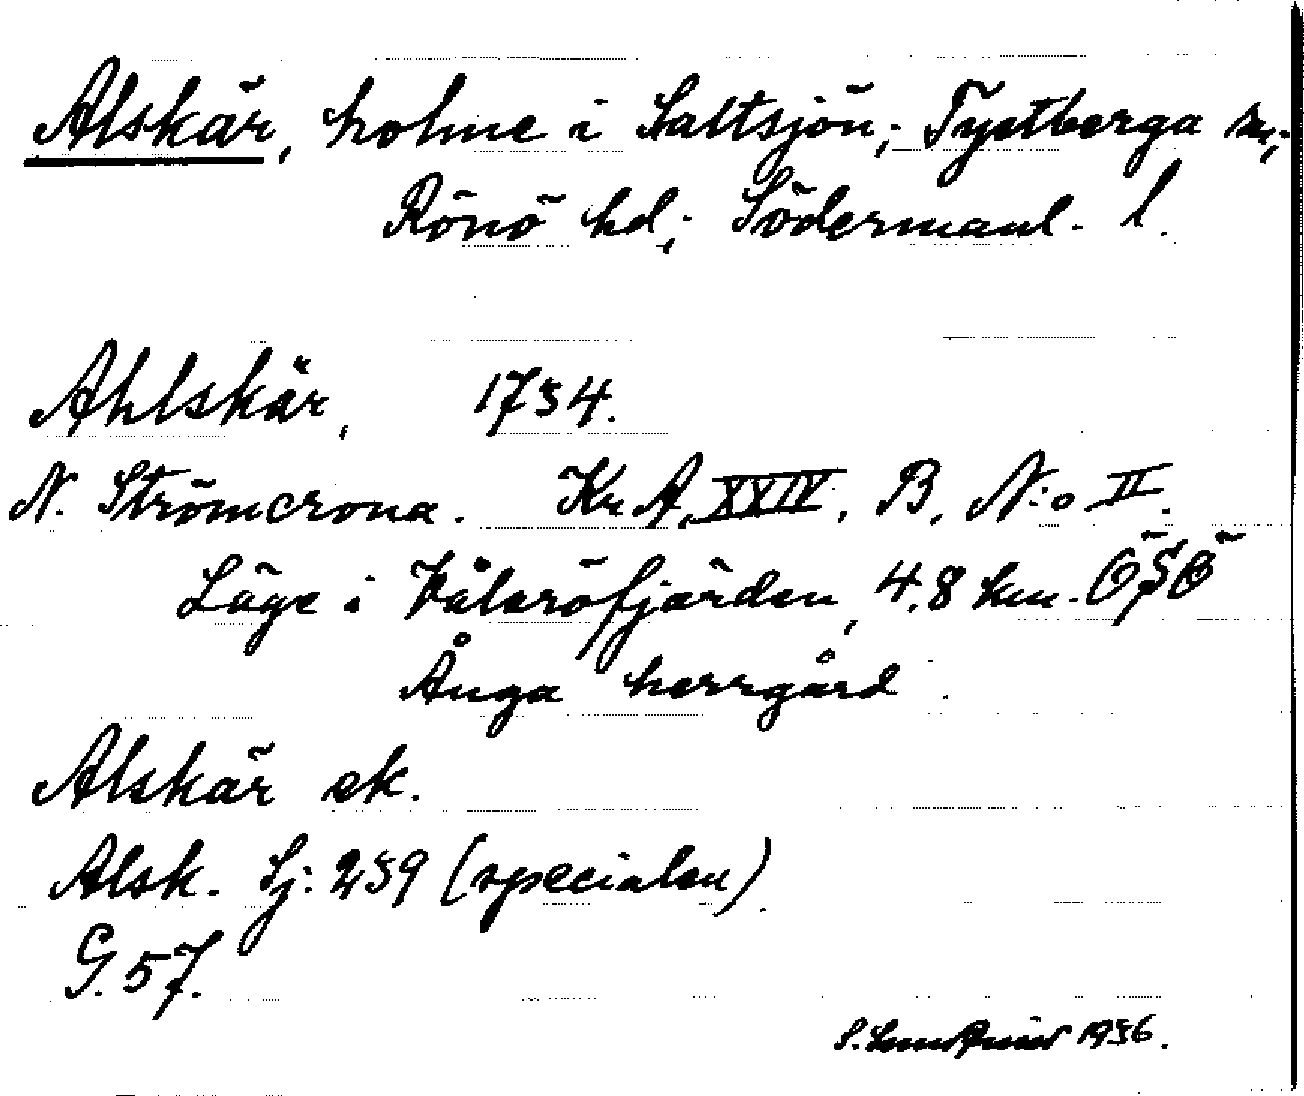 Alskär, holme i Saltsjön; Tystberga sn;
Rönö hd; Södermanl. l.
Ahlskär, 1734.
N. Strömcrona. Kr. A, XXIV, B, N:o II.
Läge i Hålsröfjärden, 4.8 km. ÖSÖ
Ånga herrgård.
Alskär ek.
Alsk. Sj: 239 (specialen)
G. 57.
S. 1936.